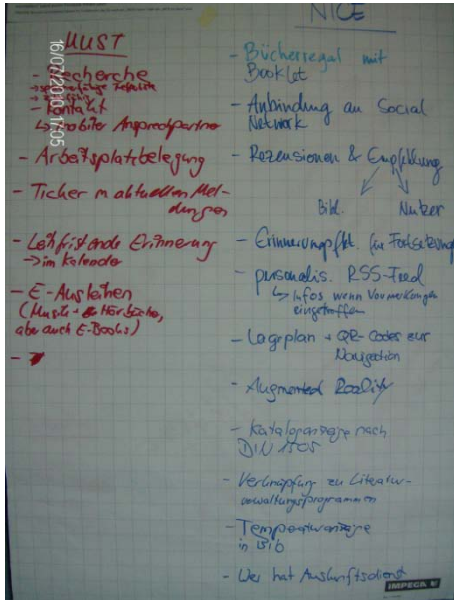 MUST
- Recherche
- Kontakt
↳ mobiler Ansprechpartner
- Arbeitsplatzbelegung
- Ticher m aktuellen Mel-
dungen
- Leihfristende Erinnerung
→ im Kalender
- E-Ausleihen
(Musik + Hörbücher,
aber auch E-Books)
-
16/07/2010 17:05
NICE
- Bücherregal mit
Booklet
- Anbindung an Social
Network
- Rezensionen & Empfehlung
Bibl. Nutzer
- Erinnerungsfkt. für Fortsetzung
- personalis. RSS-Feed
↳ Infos wenn Vormerkungen
eingetroffen
- Lageplan + QR-Codes zur
Navigation
- Augmented Reality
- Kataloganzeige nach
DIN 1505
- Verknüpfung zu Literatur-
verwaltungsprogrammen
- Temperaturanzeige
in Bib
- Wer hat Auskunftsdienst
IMPEGA